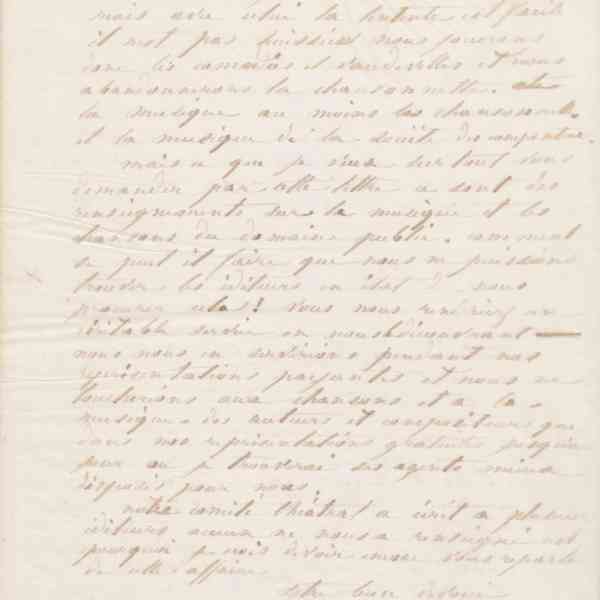 mais avec celui la l'entente est facile
il n'est pas puissions nous jouerons
donc les comedies et vaudevilles et nous
abandonnerons la chansonnette
la musique au moins les chansonnettes.
et la musique de la société des compositeurs.
mais ce que je veux surtout vous
demander par cette lettre ce sont des
renseignements sur la musique et les
chansons du domaine public. comment
se peut il faire que nous ne puissions
trouver les éditeurs en état nous
procurer cela? Vous nous rendriez un
véritable service en nous découvrant
nous nous en servirions pendant nos
représentations payantes et nous ne
toucherions aux chansons et a la
musique des auteurs et compositeurs que
dans nos représentations gratuites jusqu'au
jour ou je trouverai ses agents mieux
disposés pour nous.
notre comité théatral a écrit a plusieurs
éditeurs aucun ne nous a renseigné
pourquoi je vais devoir encore vous reparler
de cette affaire
votre bien dévoué